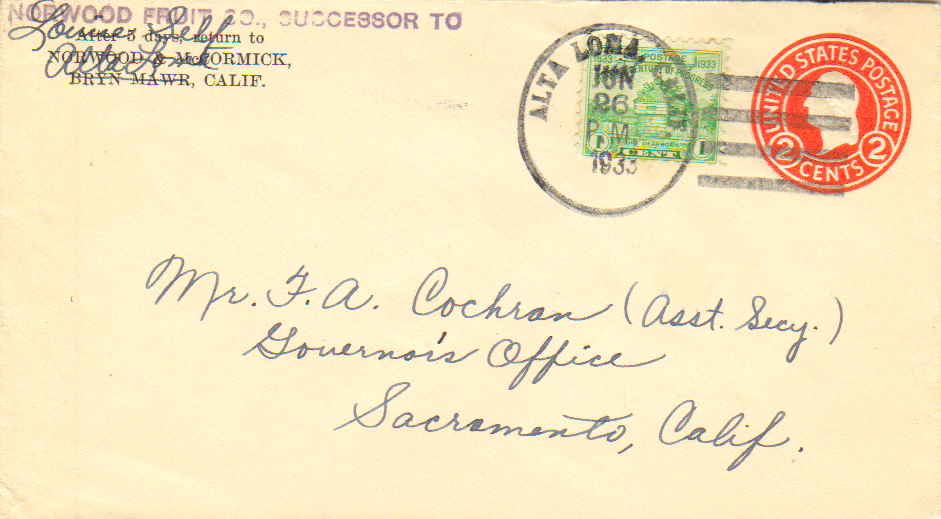 NORWOOD FRUIT CO., SUCCESSOR TO
Louise Self
After 5 days, return to
Alta Loma
NORWOOD & McCORMICK,
BRYN MAWR, CALIF.
ALTA LOMA, CALIF.
JUN
26
P M
1933
1933 1933
1 1
CENT
UNITED STATES POSTAGE
2 2
CENTS
Mr. F. A. Cochran (Asst. Secy.)
Governor's Office
Sacramento, Calif.